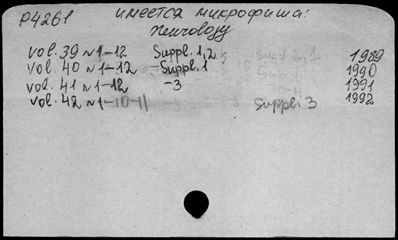 P4261 имеется микрофиша:
Neurology
vol. 39 N 1-12 Suppl. 1,2 1989
vol. 40 N 1-12 -Suppl. 1 1990
vol. 41 N 1-12 -3 1991
vol. 42 N 1-10-11 Suppl. 3 1992